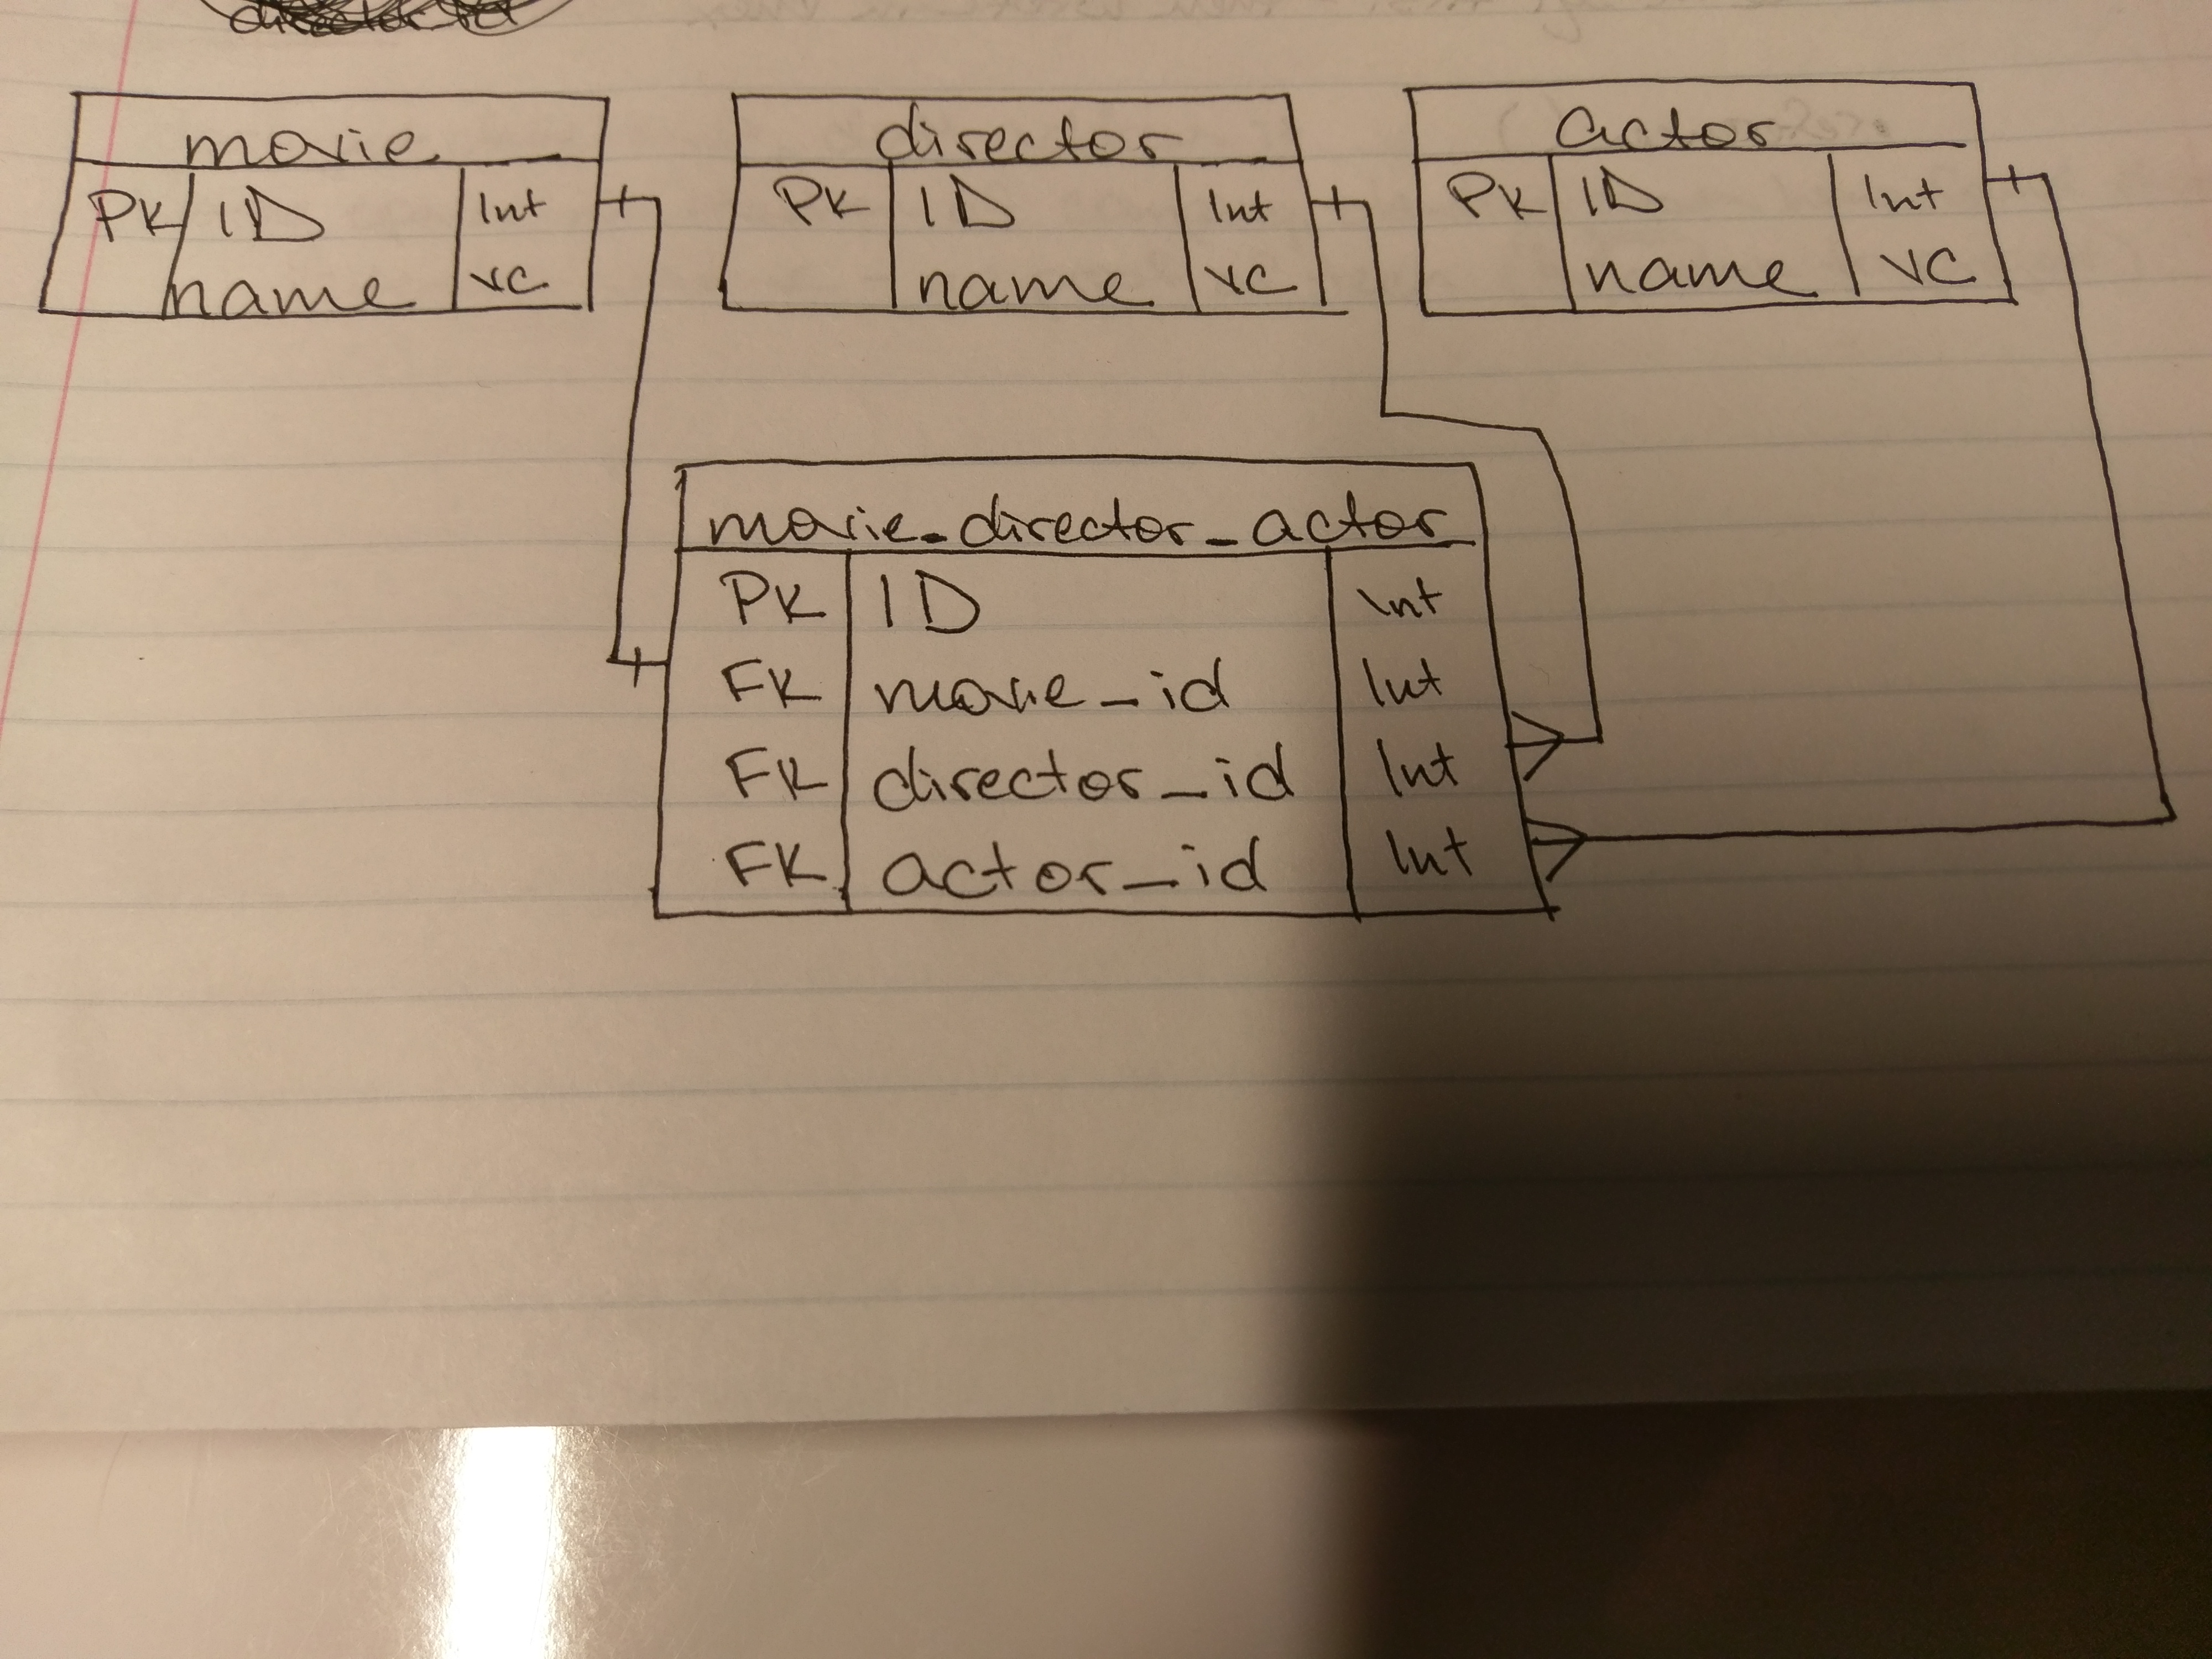 movie
PK ID Int
name vc
director
PK ID Int
name vc
actor
PK ID Int
name vc
movie_director_actor
PK ID Int
FK movie_id Int
FK director_id Int
FK actor_id Int